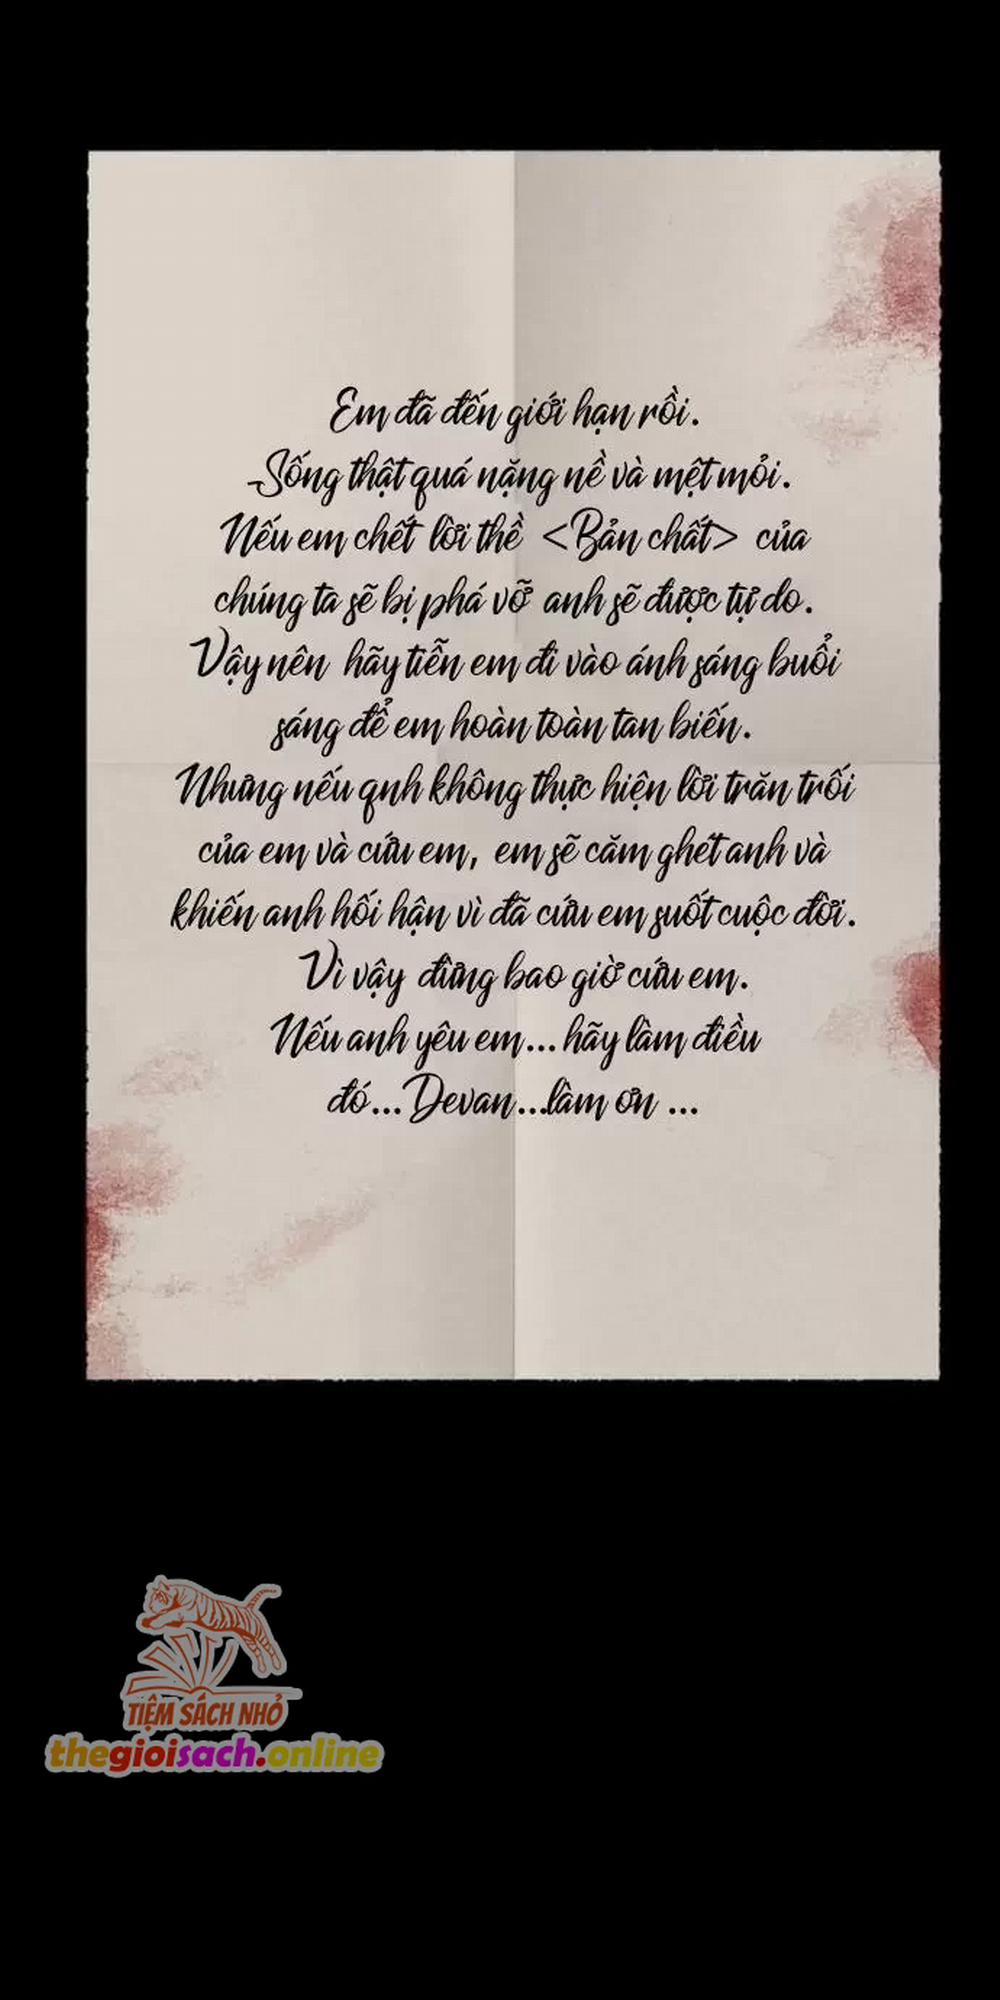 Em đã đến giới hạn rồi.
Sống thật quá nặng nề và mệt mỏi.
Nếu em chết lời thề <Bản chất> của
chúng ta sẽ bị phá vỡ anh sẽ được tự do.
Vậy nên hãy tiễn em đi vào ánh sáng buổi
sáng để em hoàn toàn tan biến.
Nhưng nếu qnh không thực hiện lời trăn trối
của em và cứu em, em sẽ căm ghét anh và
khiến anh hối hận vì đã cứu em suốt cuộc đời.
Vì vậy đừng bao giờ cứu em.
Nếu anh yêu em... hãy làm điều
đó... Devan...làm ơn ...
TIỆM SÁCH NHỎ
thegioisach.online